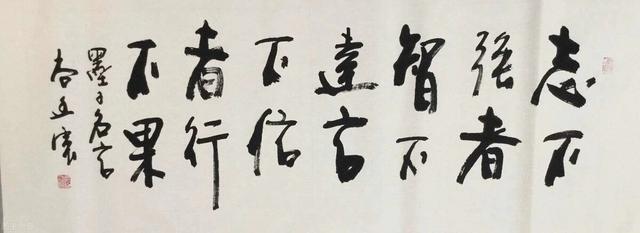 志不
强者
智不
達言
不信
者行
不果
墨子名言